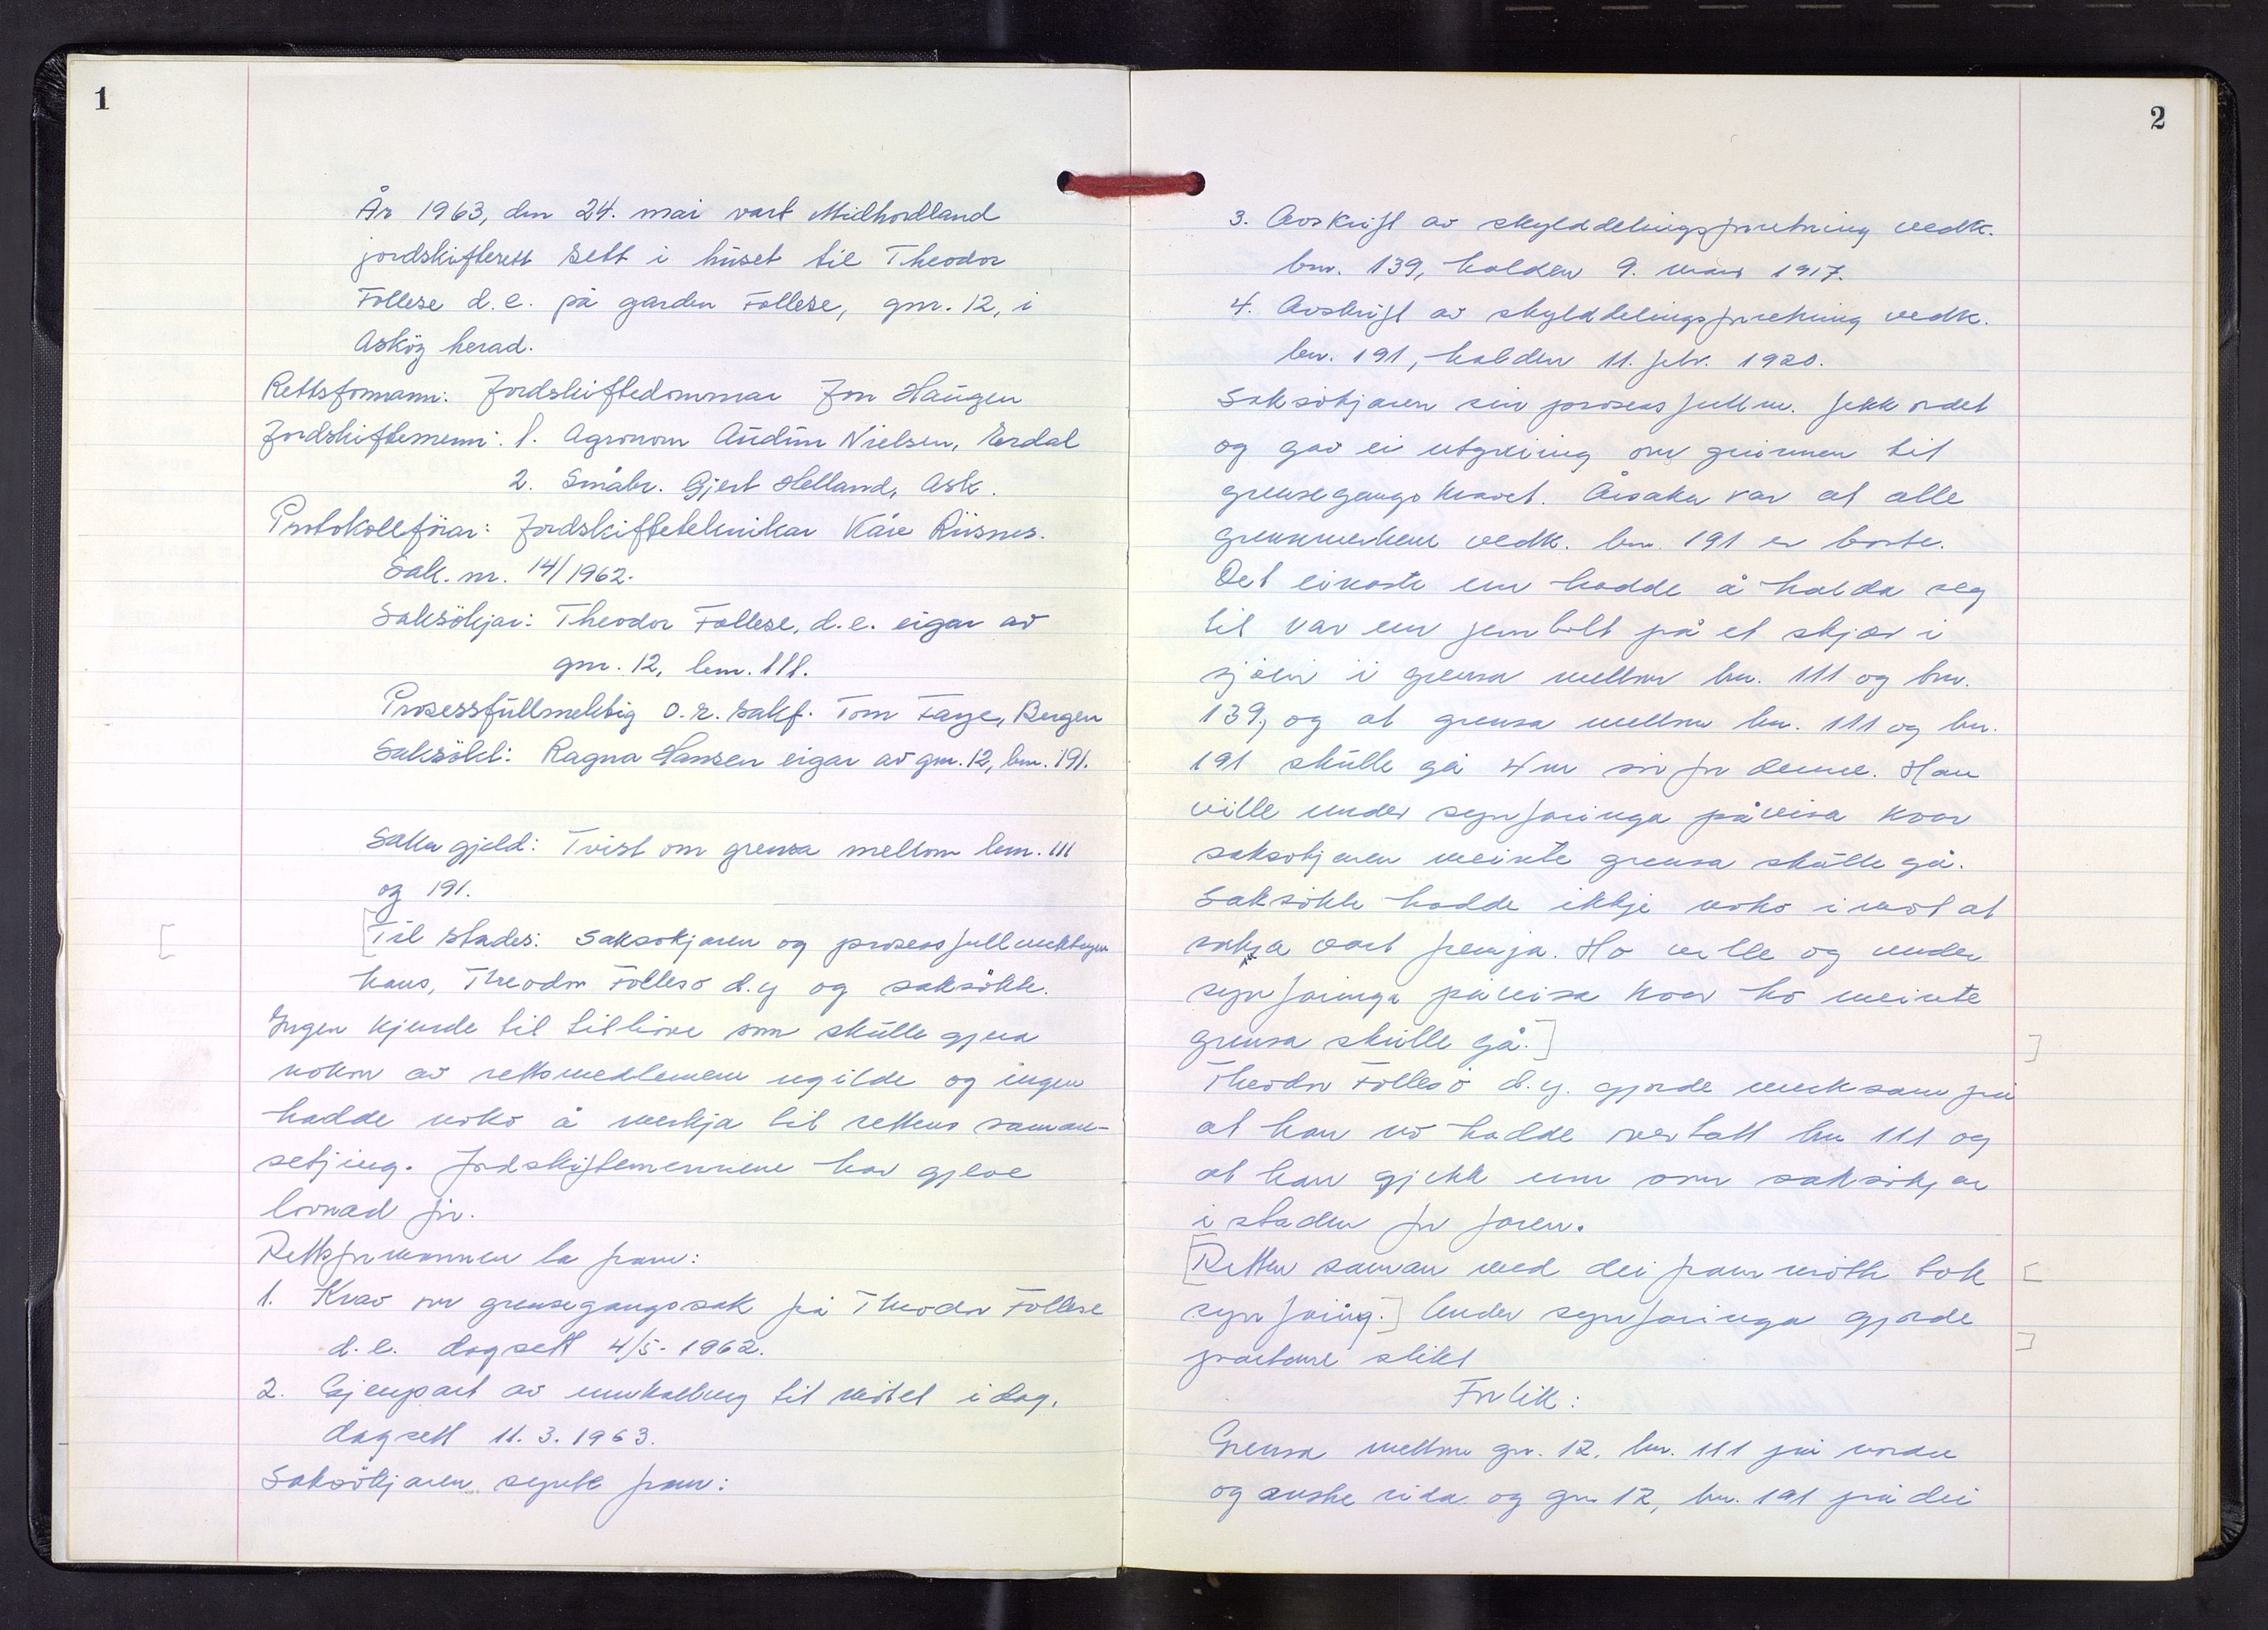 1
År 1963, den 24. mai vart Midhordland
jordskifterett sett i huset til Theodor
Follese d.e. på garden Follese, gnr. 12, i
Asköy herad.
Rettsformann: Jordskiftedommar Jon Haugen
Jordskiftemenn: 1. Agronom Audun Nielsen, Erdal
2. Småbr. Gjert Helland, Ask.
Protokollförar: Jordskifteteknikar Kåre Riisnes.
Sak. nr. 14/1962.
Saksökjar: Theodor Follese, d.e. eigar av
gnr. 12, bnr. 111.
Prosessfullmektig O.r. sakf. Tom Faye, Bergen
Saksökt: Ragna Hansen eigar av gnr. 12, bnr. 191.
Saka gjeld: Tvist om grensa mellom bnr. 111
og 191.
[Til stades: Saksökjaren og prosessfullmektigen
hans, Theodor Follesö d.y og saksökte.
Ingen kjende til tilhöve som skulle gjera
nokon av rettsmedlemene ugilde og ingen
hadde noko å merkja til rettens saman-
setjing. Jordskiftemennene har gjeve
lovnad för.
Rettsformannen la fram:
1. Krav om grensegangssak frå Theodor Follese
d.e. dagsett 4/5-1962.
2. Gjenpart av innkalling til mötet i dag,
dagsett 11.3.1963.
Saksökjaren synte fram:
2
3. Avskrift av skylddelingsforretning vedk.
bnr. 139, halden 9. mars 1917.
4. Avskrift av skylddelingsforretning vedk.
bnr. 191, halden 11. febr. 1920.
Saksökjaren sin prosessfullm. fekk ordet
og gav ei utgreiing om grunnen til
grensegangskravet. Årsaka var at alle
grensemerkene vedk. bnr. 191 er borte.
Det einaste ein hadde å halda seg
til var ein jernbolt på et skjær i
sjöen i grensa mellom bnr. 111 og bnr.
139, og at grensa mellom bnr. 111 og bnr.
191 skulle gå 4 m sör for denne. Han
ville under synfaringa påvisa kvar
saksökjaren meinte grensa skulle gå.
Saksökte hadde ikkje noko imot at
saka vart fremja. Ho ville og under
synfaringa påvisa kvar ho meinte
grensa skulle gå.]
Theodor Follesö d.y. gjorde merksam på
at han no hadde overtatt bnr 111 og
at han gjekk inn som saksökjar
i staden for faren.
[Retten saman med dei frammötte tok
synfaring.] Under synfaringa gjorde
partane slikt
Forlik:
Grensa mellom gnr. 12, bnr. 111 på nordre
og austre sida og gnr 12, bnr. 191 på dei